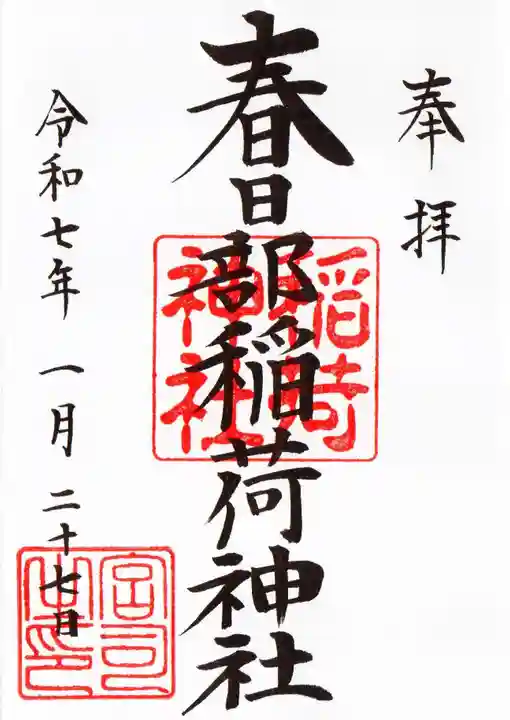 奉拝
春日部稲荷神社
令和七年 一月 二十七日
宮司之印